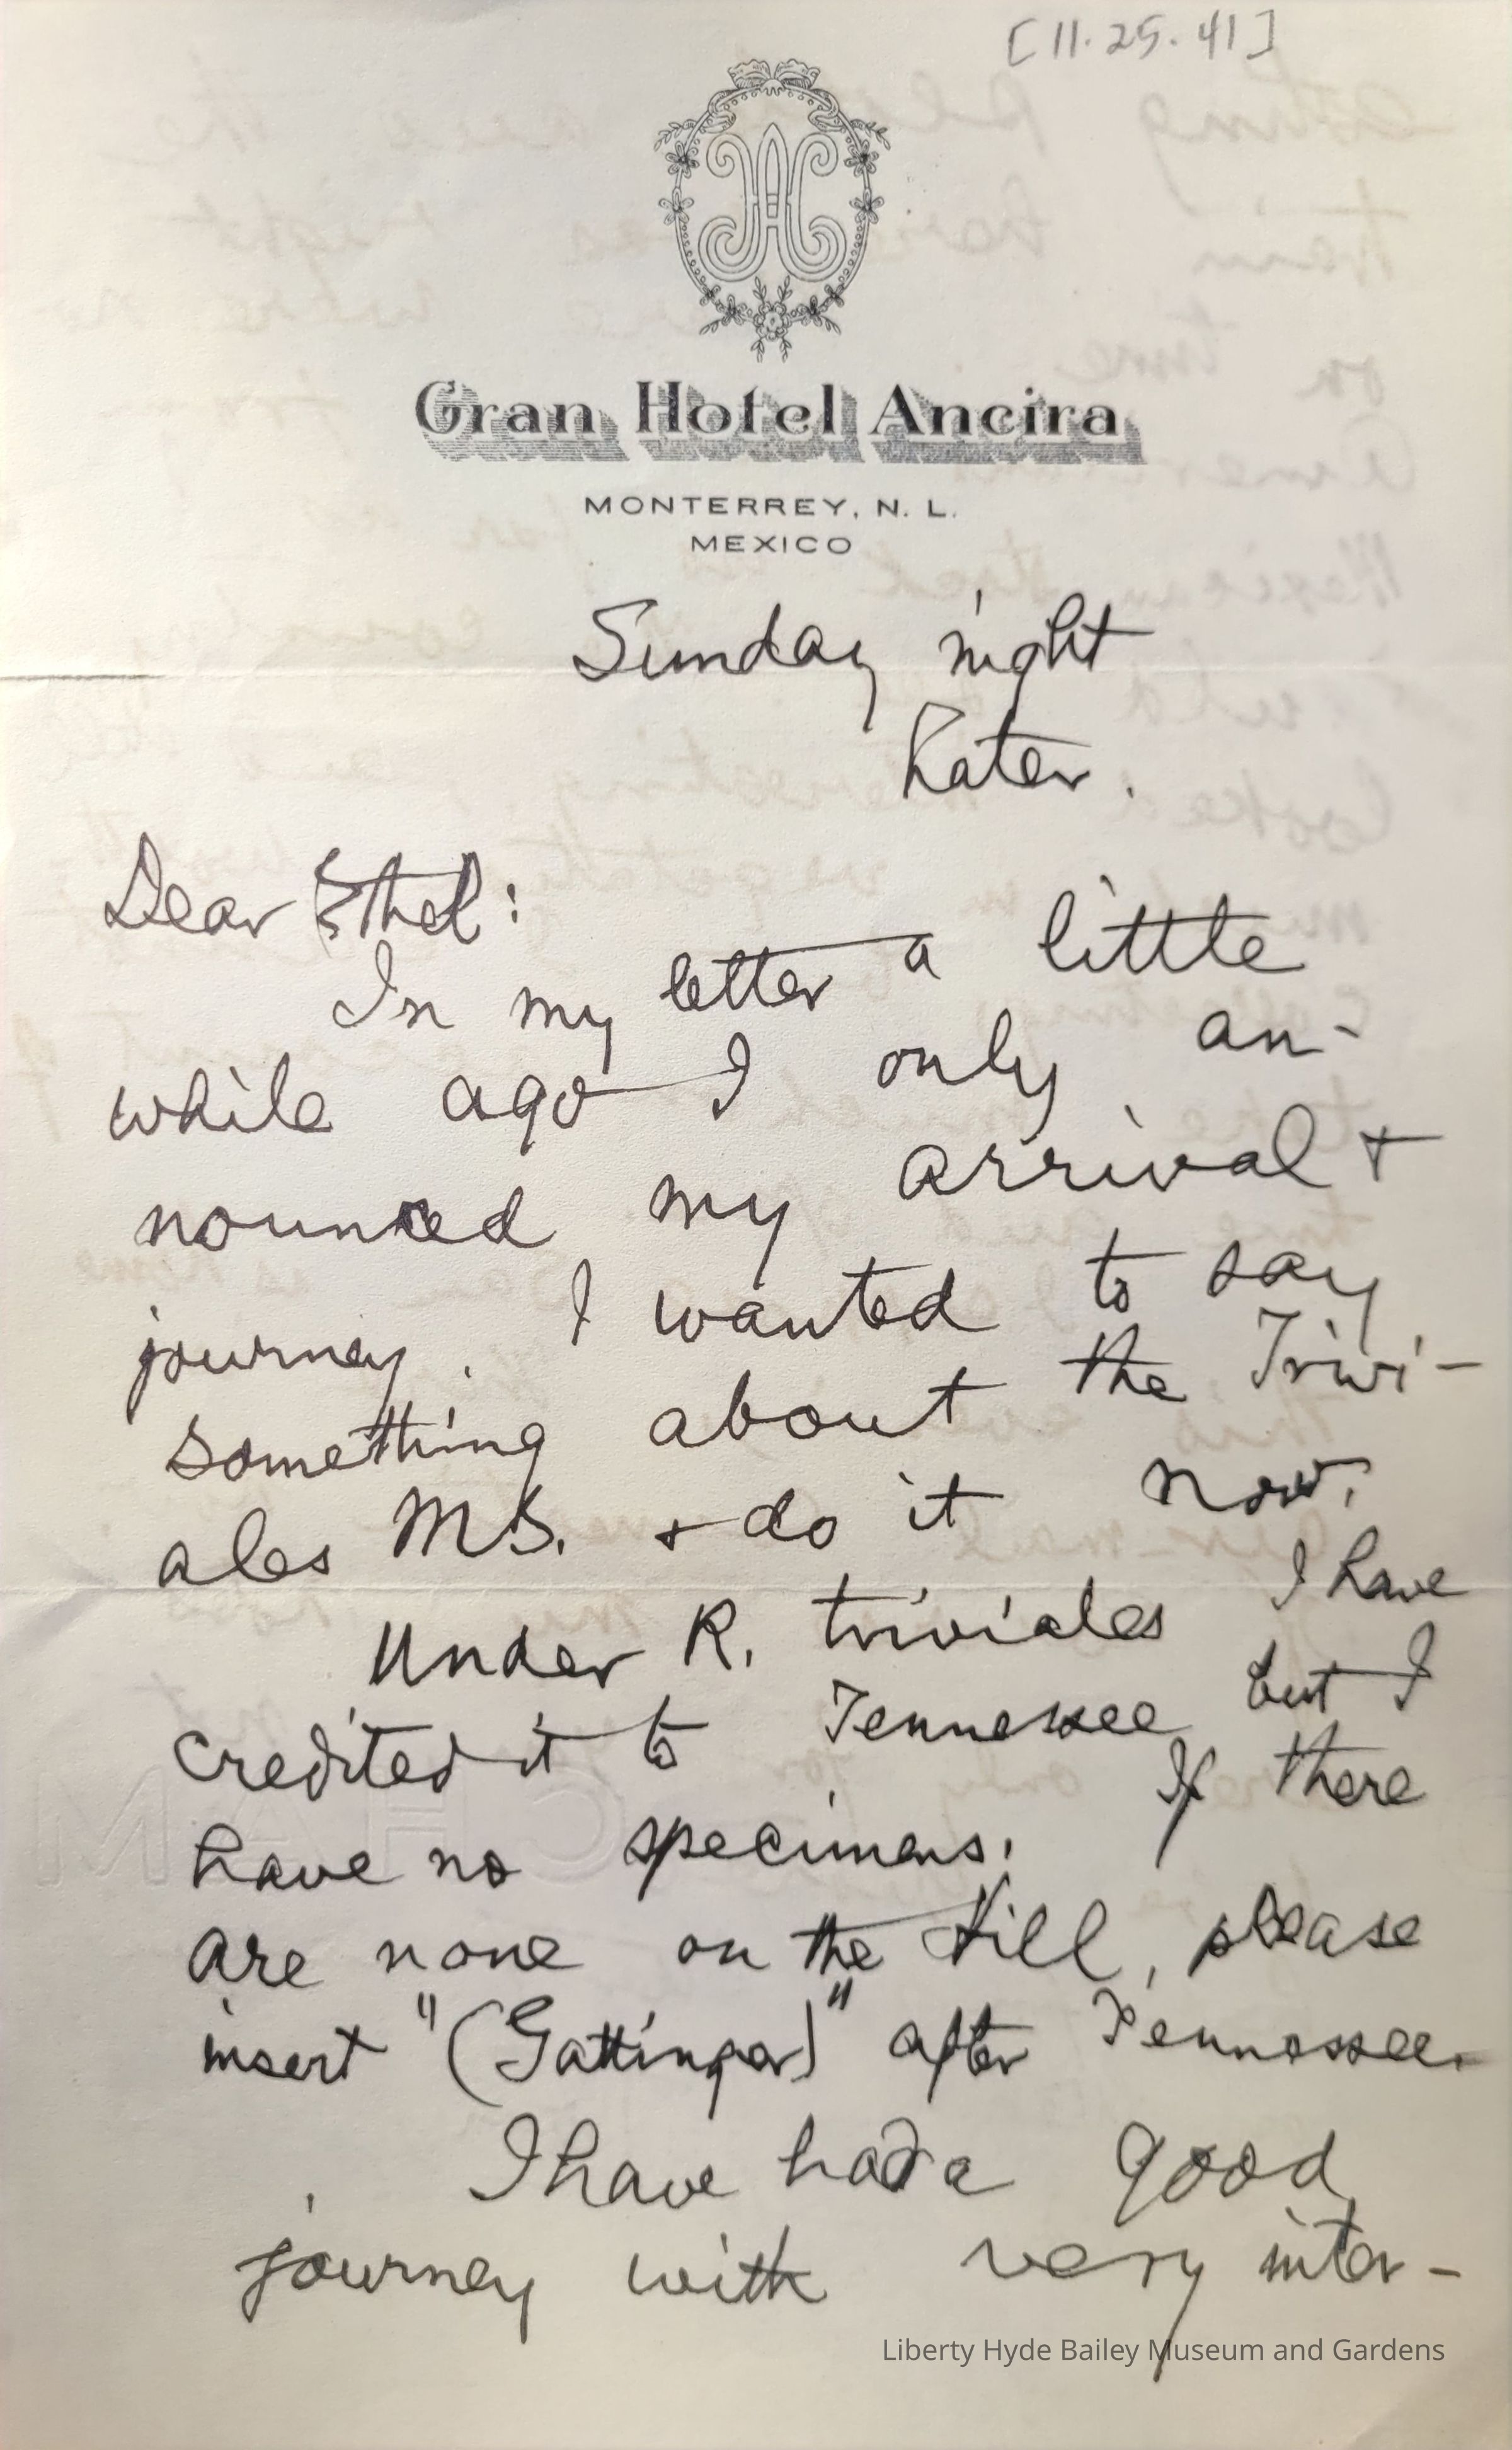 [11.25.41]
Gran Hotel Ancira
MONTERREY, N. L.
MEXICO
Sunday night
Later.
Dear Ethel:
In my letter a little
while ago I only an-
nounced my arrival +
journey. I wanted to say
something about the Trivi-
ales MS. + do it now.
Under R. triviales I have
credited it to Tennessee but I
have no specimens. If there
are none on the Hill, please
insert "(Gattinger)" after Tennessee.
I have had a good
journey with very inter-
Liberty Hyde Bailey Museum and Gardens